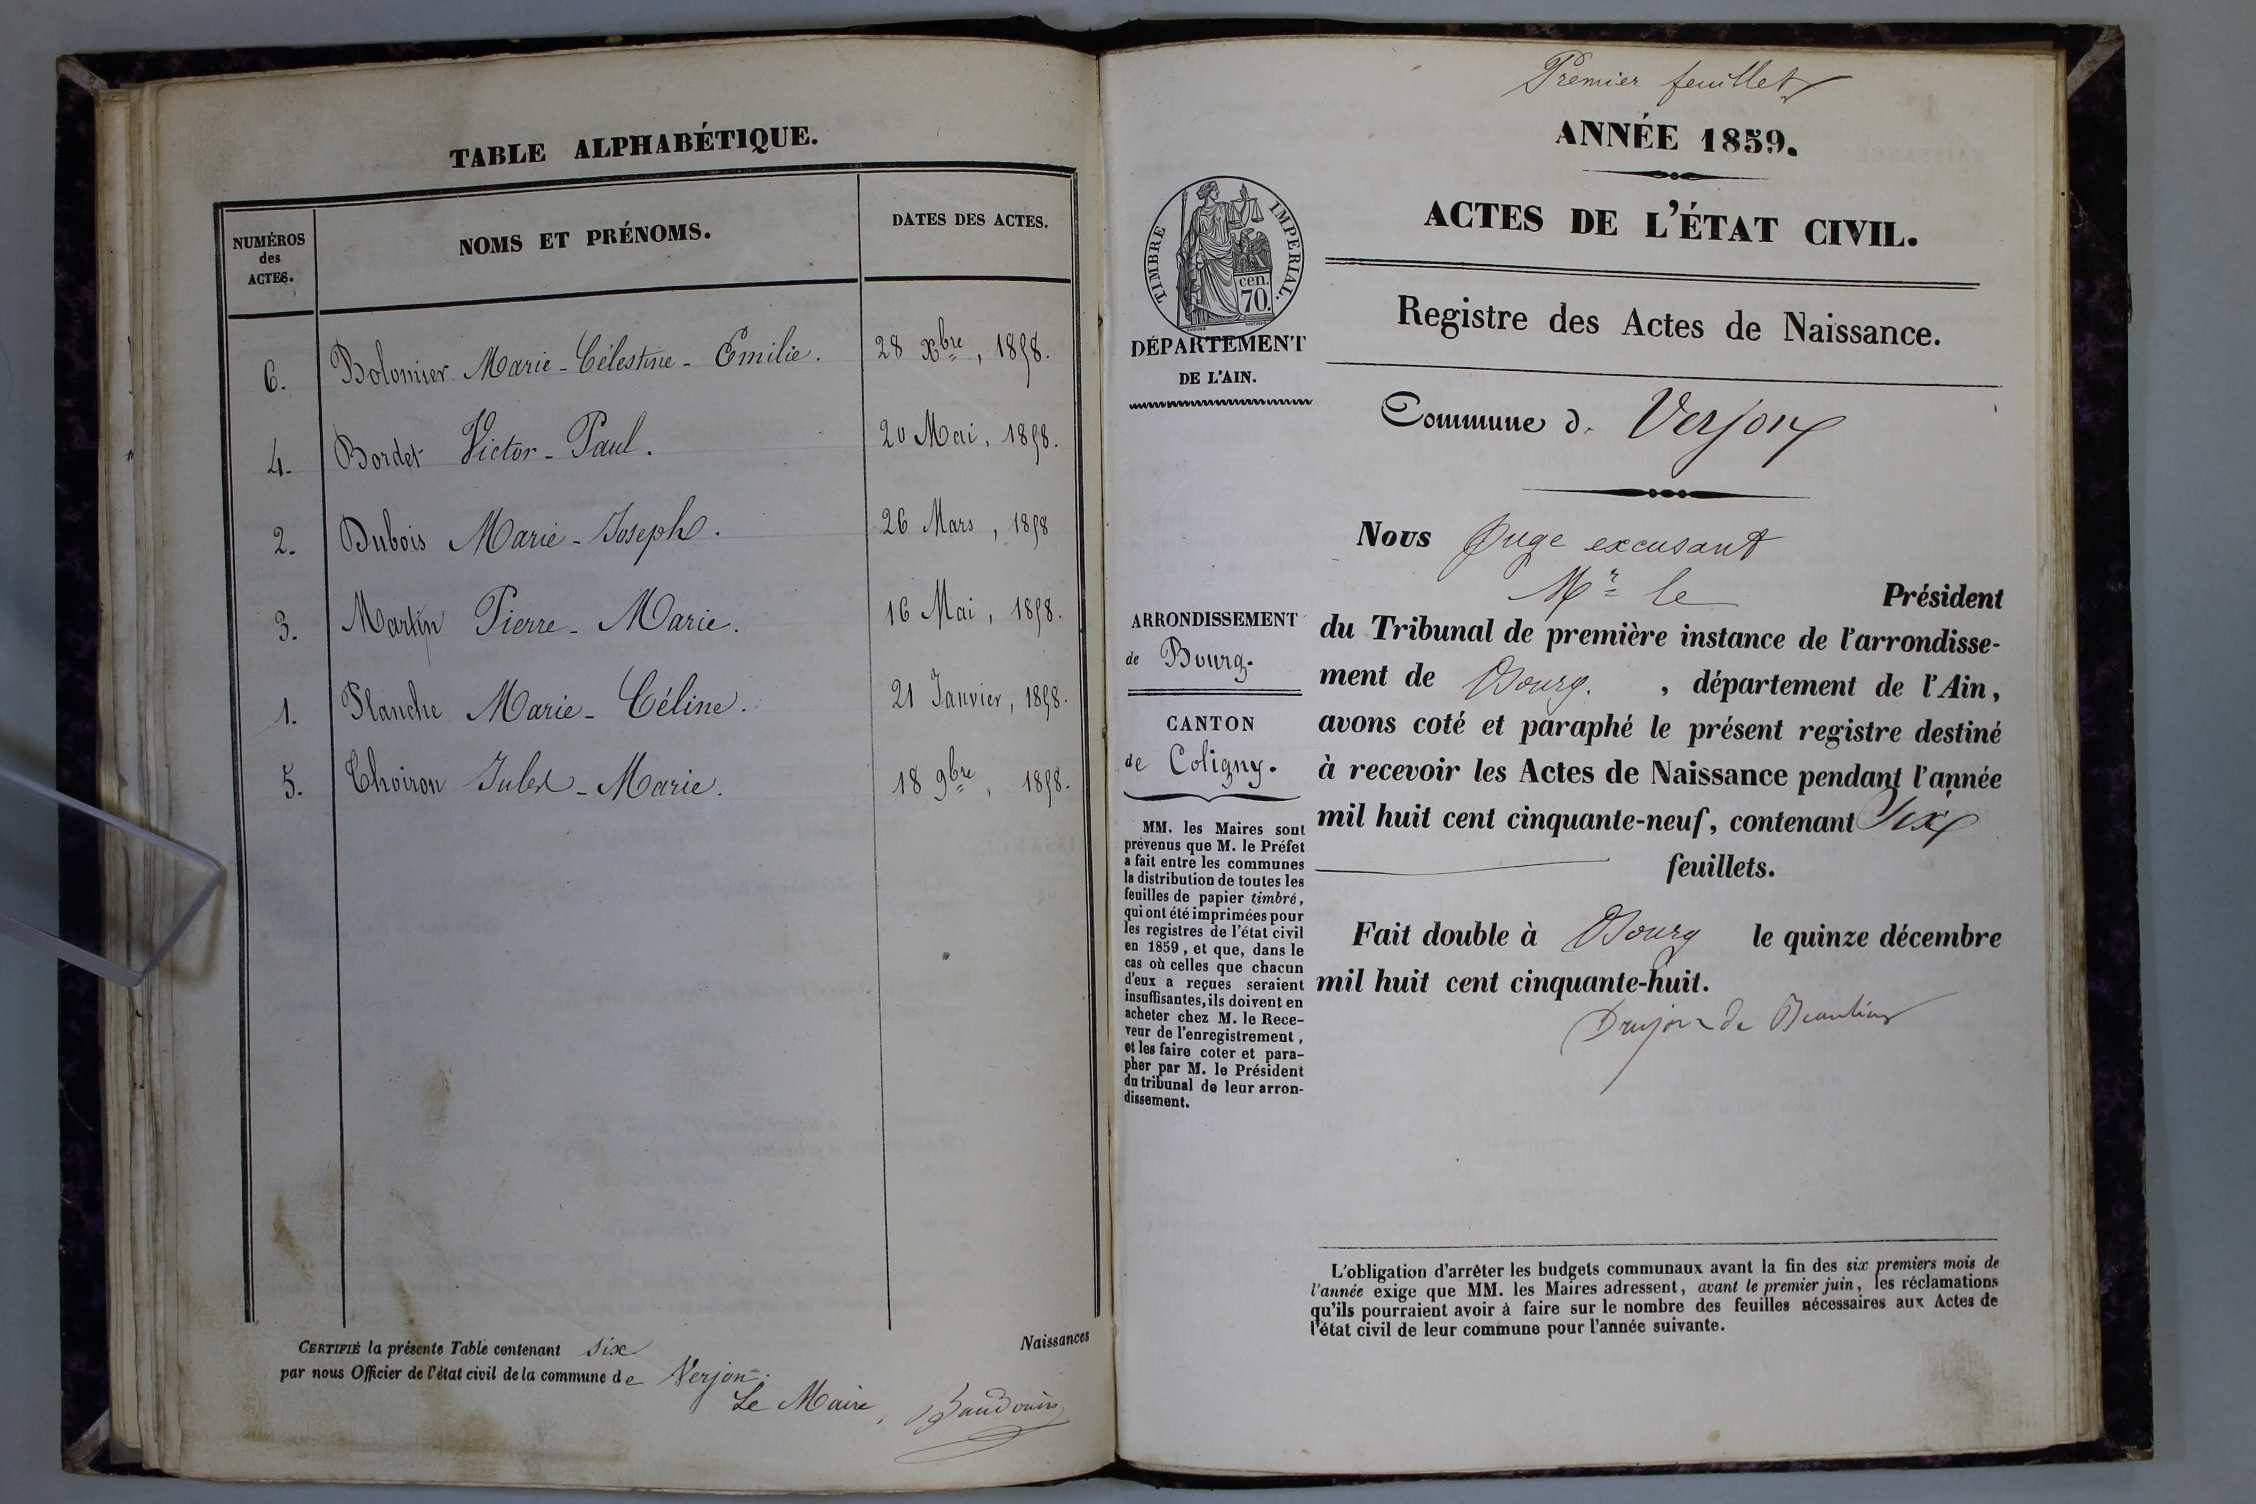 TABLE ALPHABÉTIQUE.
NUMÉROS
des
ACTES.
NOMS ET PRÉNOMS.
DATES DES ACTES.
6. Bolomier Marie-Célestine-Emilie. 28 Xbre, 1858.
4. Bordet Victor-Paul. 20 Mai, 1858.
2. Dubois Marie-Joseph. 26 Mars, 1858
3. Martin Pierre-Marie. 16 Mai, 1858.
1. Planche Marie-Céline. 21 Janvier, 1858.
5. Thoiron Jules-Marie. 18 9bre, 1858.
CERTIFIÉ la présente Table contenant six Naissances
par nous Officier de l'état civil de la commune de Verjon.
Le Maire, Baudouin
Premier feuillet
ANNÉE 1859.
ACTES DE L'ÉTAT CIVIL.
TIMBRE IMPERIAL.
cen.
70.
DÉPARTEMENT
DE L'AIN.
Registre des Actes de Naissance.
Commune d. Verjon
ARRONDISSEMENT
de Bourg.
CANTON
de Coligny.
MM. les Maires sont
prévenus que M. le Préfet
a fait entre les communes
la distribution de toutes les
feuilles de papier timbré,
qui ont été imprimées pour
les registres de l'état civil
en 1859, et que, dans le
cas où celles que chacun
d'eux a reçues seraient
insuffisantes, ils doivent en
acheter chez M. le Rece-
veur de l'enregistrement,
et les faire coter et para-
pher par M. le Président
du tribunal de leur arron-
dissement.
Nous Juge excusant
Mr le Président
du Tribunal de première instance de l'arrondisse-
ment de Bourg. , département de l'Ain,
avons coté et paraphé le présent registre destiné
à recevoir les Actes de Naissance pendant l'année
mil huit cent cinquante-neuf, contenant Six
feuillets.
Fait double à Bourg le quinze décembre
mil huit cent cinquante-huit.
Drujon de Beaulieu
L'obligation d'arrêter les budgets communaux avant la fin des six premiers mois de
l'année exige que MM. les Maires adressent, avant le premier juin, les réclamations
qu'ils pourraient avoir à faire sur le nombre des feuilles nécessaires aux Actes de
l'état civil de leur commune pour l'année suivante.